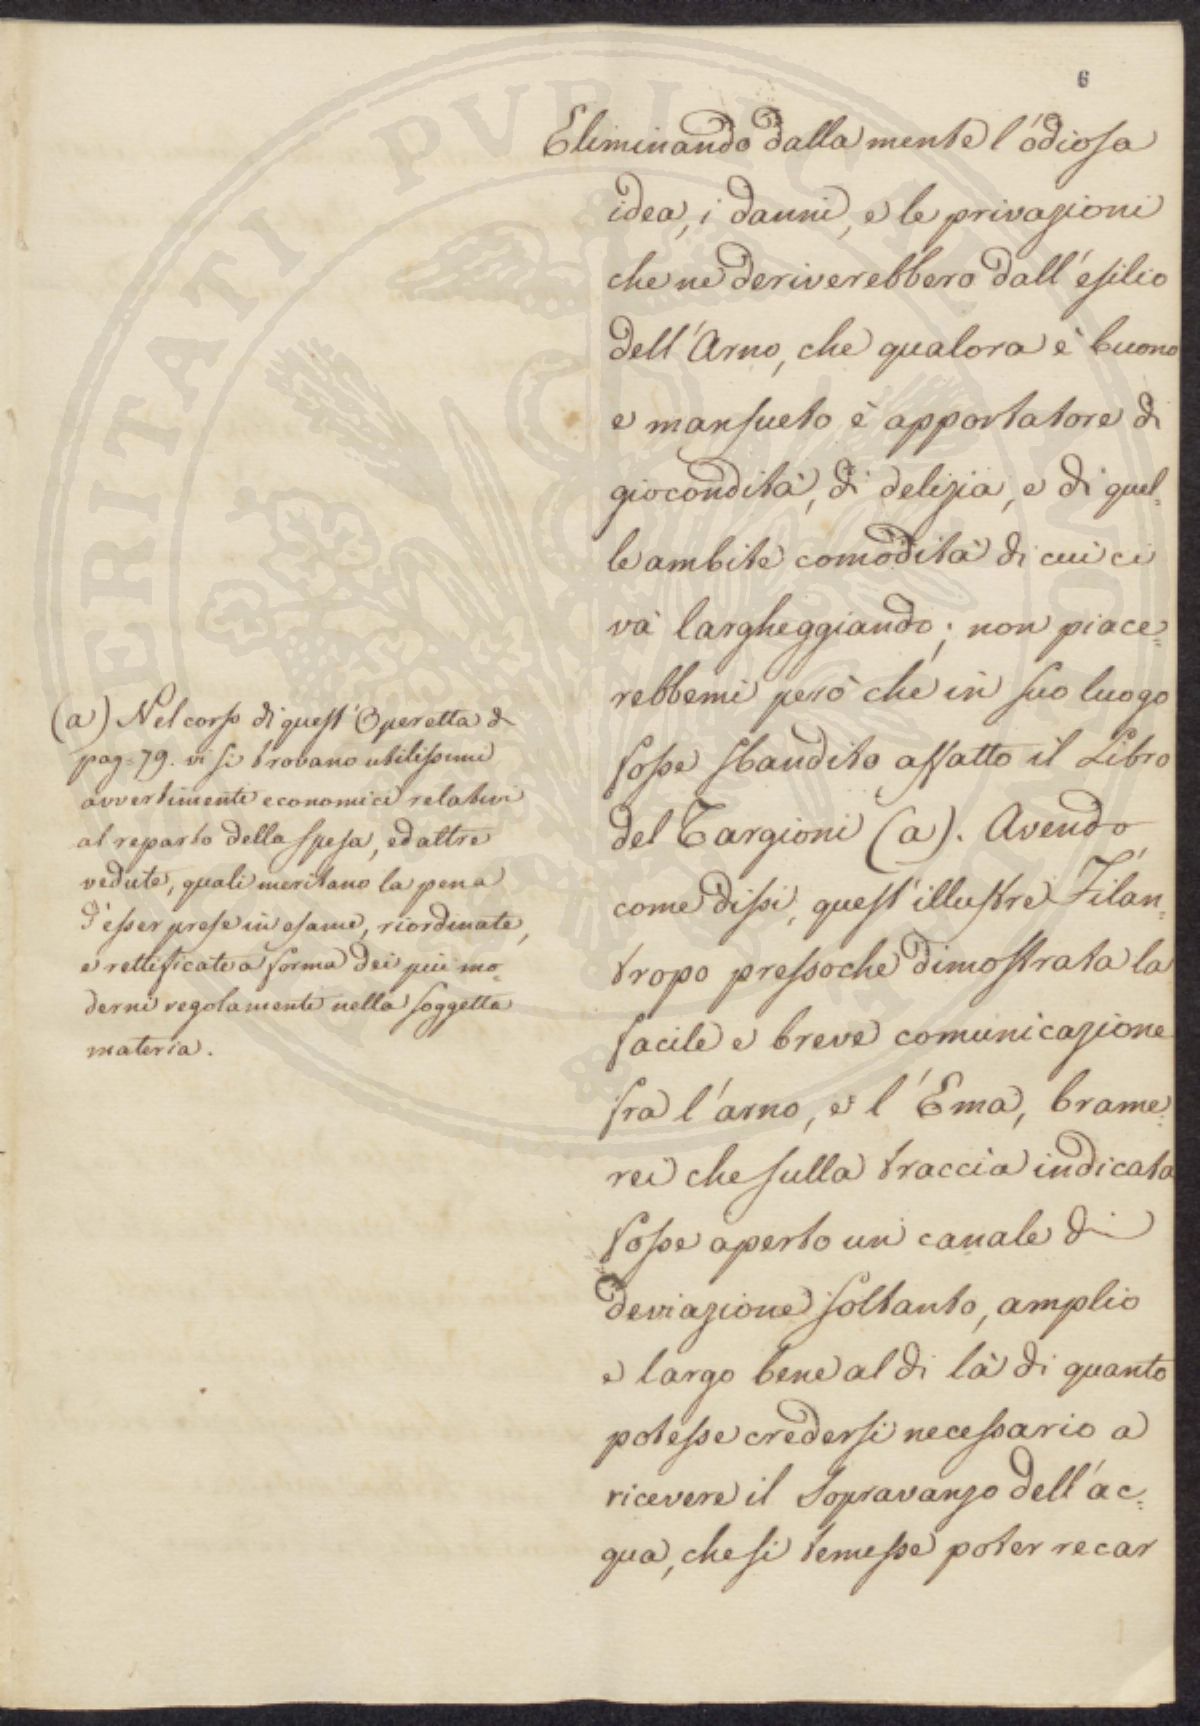 6
Eliminando dalla mente l'odiosa
idea, i danni, e le privazioni
che ne deriverebbero dall'esilio
dell'Arno, che qualora è buono
e mansueto è apportatore di
giocondità, di delizia, e di quel=
le ambite comodità di cui ci
và largheggiando; non piace=
rebbemi però che in suo luogo
fosse sbandito affatto il Libro
del Targioni (a). Avendo
come dissi, quest'illustre Filan=
tropo pressoche dimostrata la
facile e breve comunicazione
fra l'arno, e l'Ema, brame=
rei che sulla traccia indicata
fosse aperto un canale di
deviazione soltanto, amplio
e largo bene al di là di quanto
potesse credersi necessario a
ricevere il sopravanzo dell'ac=
qua, che si temesse poter recar
(a) Nel corso di quest'Operetta a
pag= 79. vi si trovano utilissimi
avvertimenti economici relativi
al reparto della spesa, ed altre
vedute, quali meritano la pena
d'esser prese in esame, riordinate,
e rettificate a forma dei più mo=
derni regolamenti nella soggetta
materia.
PVBLICAE
VERITATI